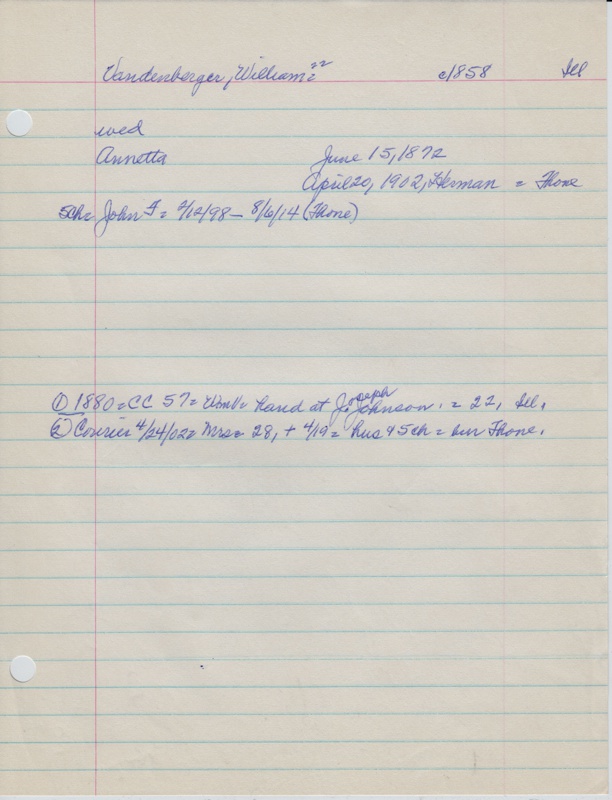 Vandenberger, William = 22 c1858 Ill
wed
Annetta June 15, 1872
April 20, 1902, Herman = Thone
5ch = John F = 2/12/98 - 8/6/14 (Thone)
① 1880 = CC 57 = Wm V = hand at Joseph Johnson. = 22, Ill.
② Courier 4/24/02 = Mrs = 28, + 4/19 = hus & 5ch = bur Thone.